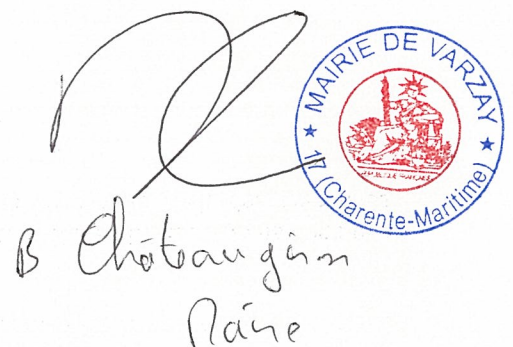 MAIRIE DE VARZAY
17 (Charente-Maritime)
B Châteaugiron
Maire